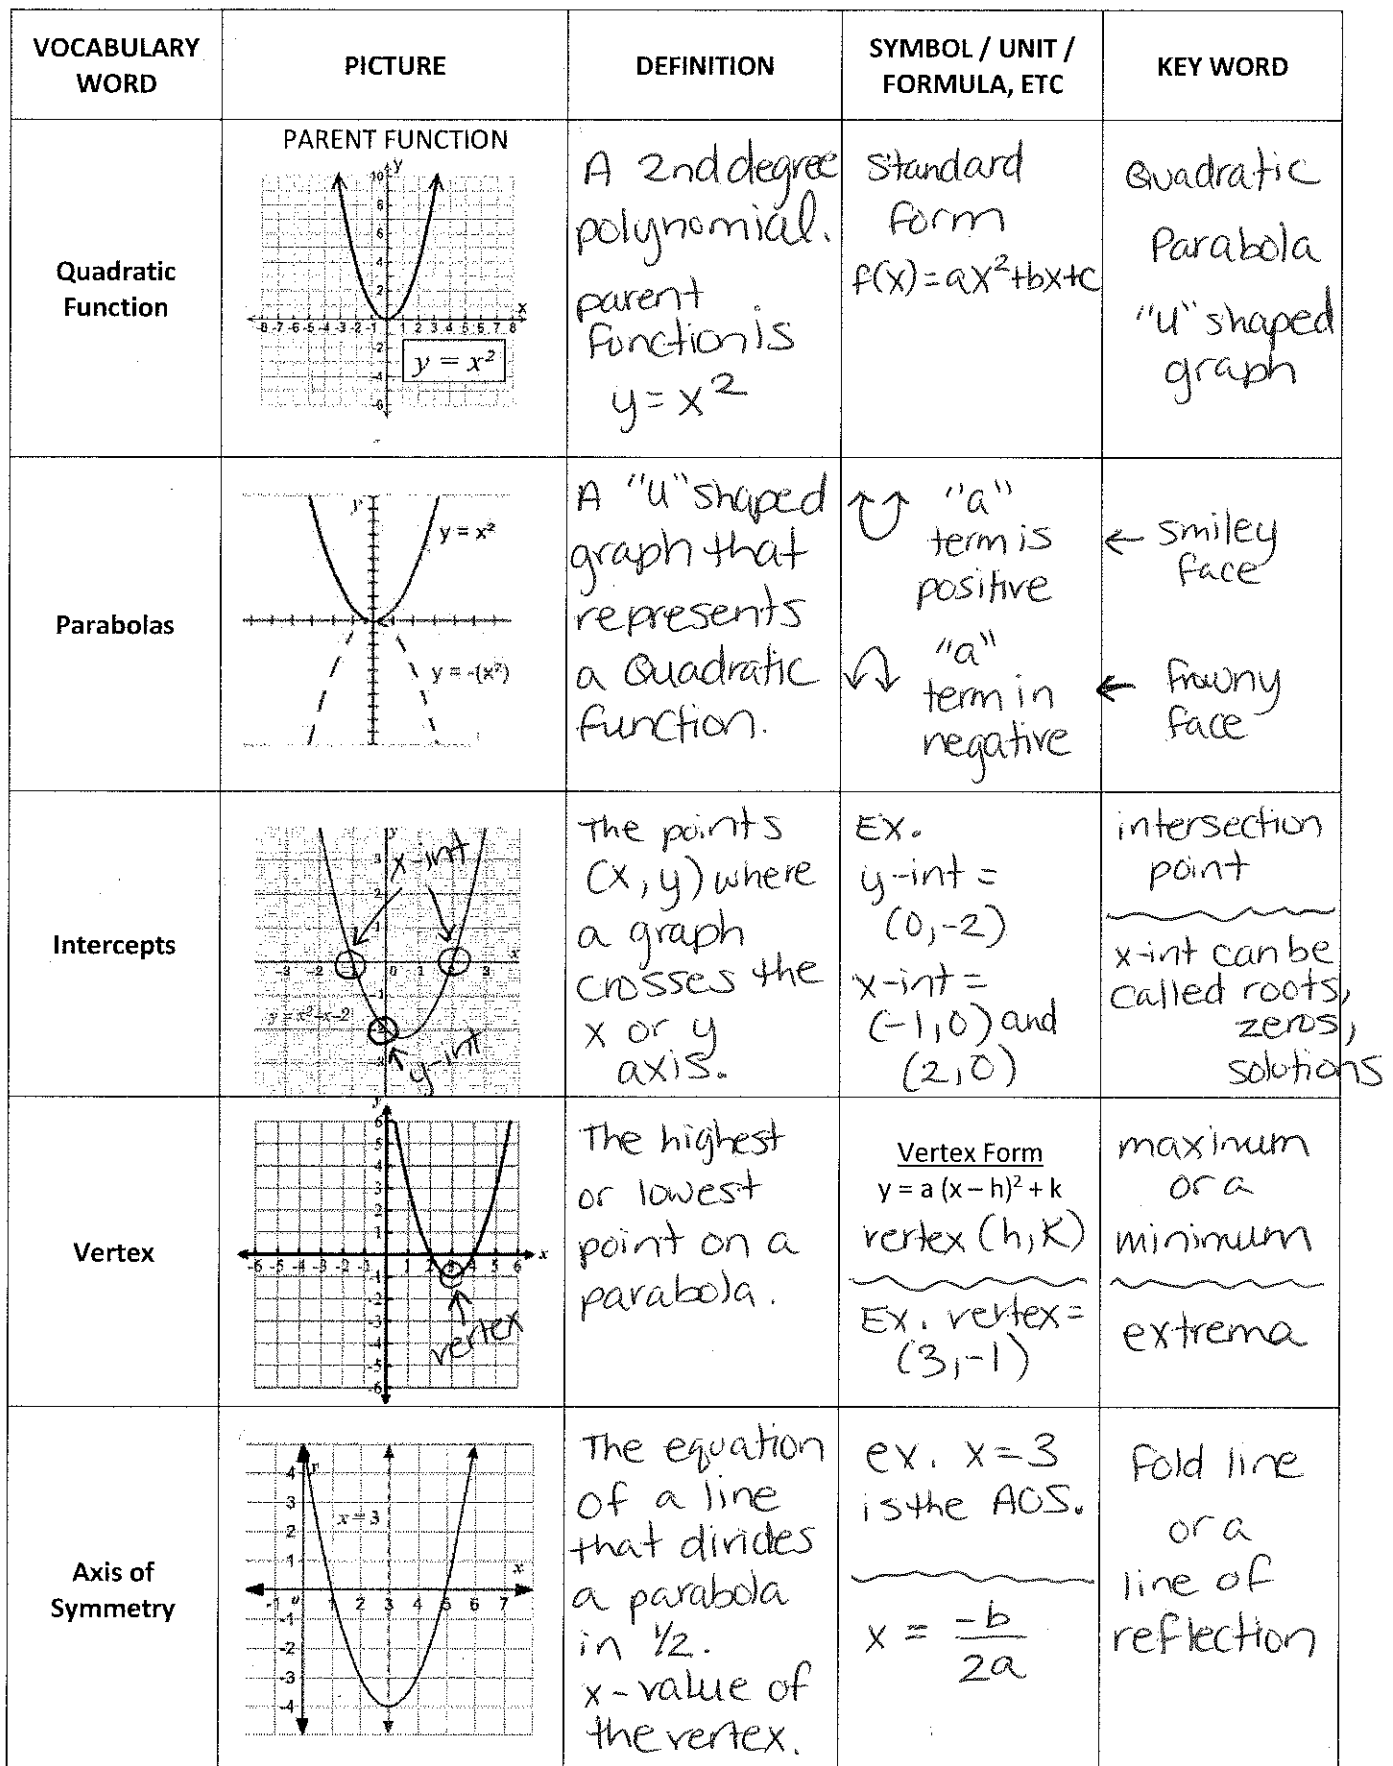 VOCABULARY
WORD
PICTURE
DEFINITION
SYMBOL / UNIT /
FORMULA, ETC
KEY WORD
Quadratic
Function
PARENT FUNCTION
y
10
8
6
4
2
x
-8 -7 -6 -5 -4 -3 -2 -1 1 2 3 4 5 6 7 8
-2
-4
-6
y = x²
A 2nd degree
polynomial.
parent
function is
y = x²
Standard
form
f(x) = ax²+bx+c
Quadratic
Parabola
"U" shaped
graph
Parabolas
y
y = x²
y = -(x²)
A "U" shaped
graph that
represents
a Quadratic
function.
"a"
term is
positive
"a"
term in
negative
← smiley
face
← frowny
face
Intercepts
y
3
x-int
2
x
-3 -2 0 1 3
-1
y = x²-x-2
-3
y-int
The points
(x, y) where
a graph
crosses the
x or y
axis.
Ex.
y-int =
(0,-2)
x-int =
(-1,0) and
(2,0)
intersection
point
x-int can be
called roots,
zeros,
solutions
Vertex
y
6
5
4
3
2
1
x
-6 -5 -4 -3 -2 -1 1 2 3 4 5 6
-1
-2
-3
-4
-5
-6
vertex
The highest
or lowest
point on a
parabola.
Vertex Form
y = a (x – h)² + k
vertex (h, k)
Ex. vertex =
(3,-1)
maxinum
or a
minimum
extrema
Axis of
Symmetry
y
4
3
2
1
x = 3
x
-1 0 1 2 3 4 5 6 7
-1
-2
-3
-4
The equation
of a line
that divides
a parabola
in 1/2.
x-value of
the vertex.
ex. x = 3
is the AOS.
x = -b
2a
fold line
or a
line of
reflection